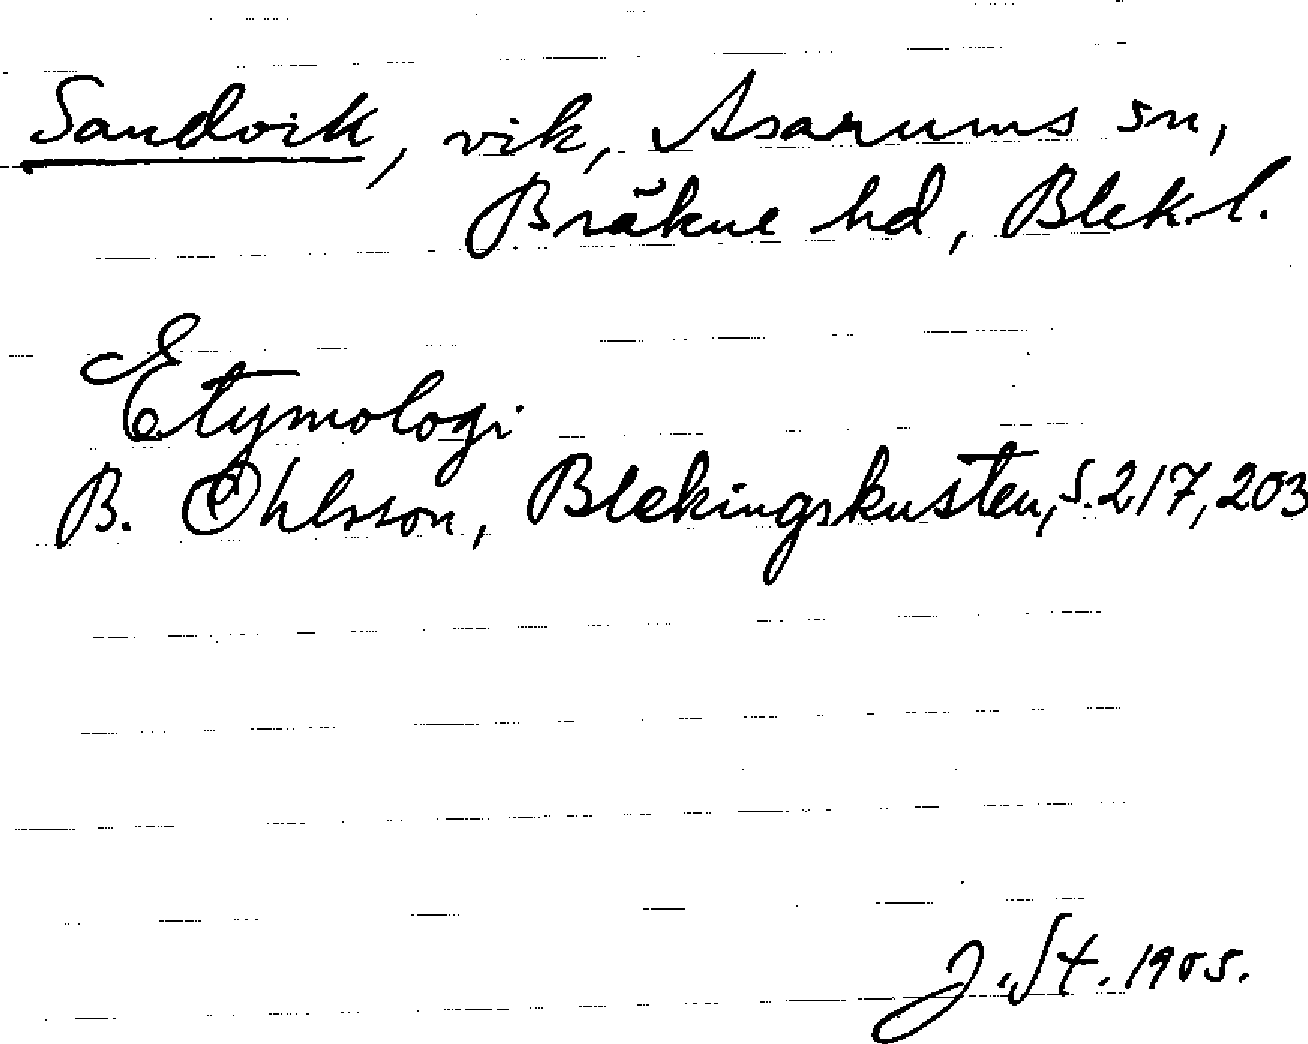 Sandvik, vik, Asarums sn,
Bräkne hd, Blek. l.
Etymologi
B. Ohlsson, Blekingskusten, s. 217, 203
J. St. 1905.